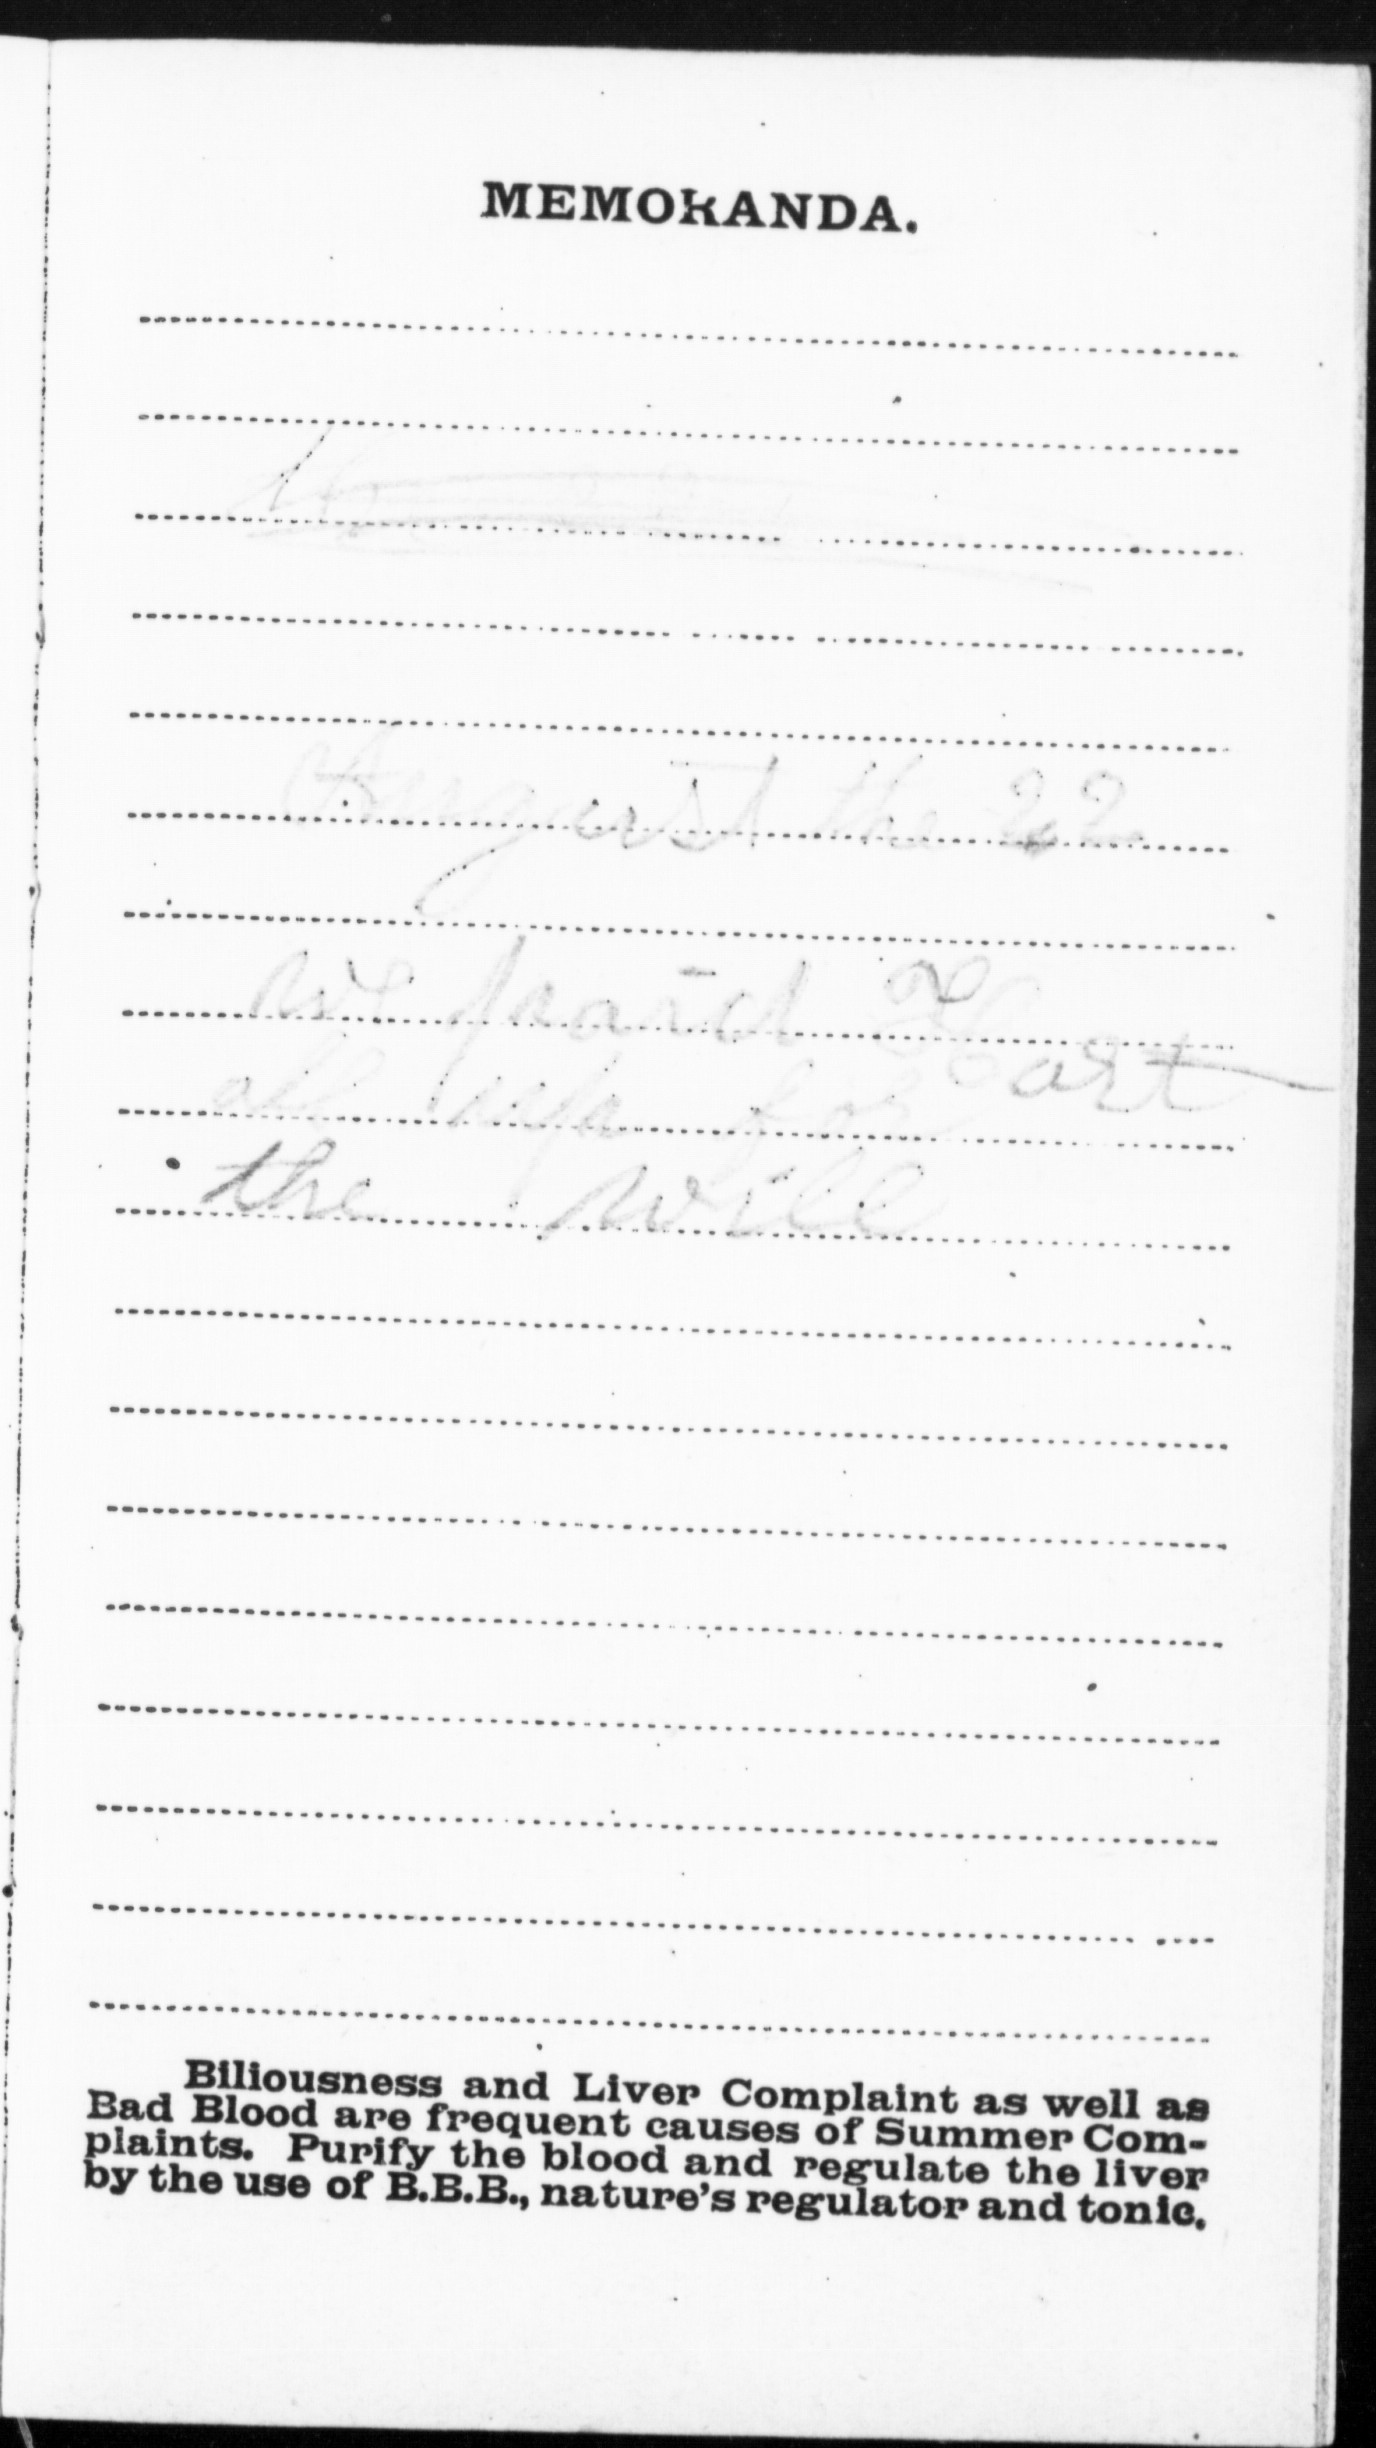 MEMORANDA.
August the 22
we paid Hart
all up for
the will
Biliousness and Liver Complaint as well as
Bad Blood are frequent causes of Summer Com-
plaints. Purify the blood and regulate the liver
by the use of B.B.B., nature's regulator and tonic.